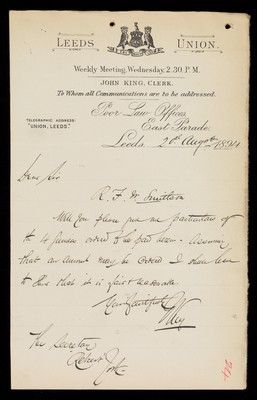 LEEDS UNION.
Weekly Meeting, Wednesday, 2.30. P.M.
JOHN KING, CLERK.
To Whom all Communications are to be addressed.
TELEGRAPHIC ADDRESS:
"UNION, LEEDS."
Poor Law Offices
East Parade
Leeds 20th Augst 1894
Dear Sir
R. F. W. Smithson
Will you please give me particulars of
the 4 Guineas ordered to be paid
that an amount may be ordered I shall have
to that it is fair & reasonable
Yours faithfully
The Secretary
Retreat
York